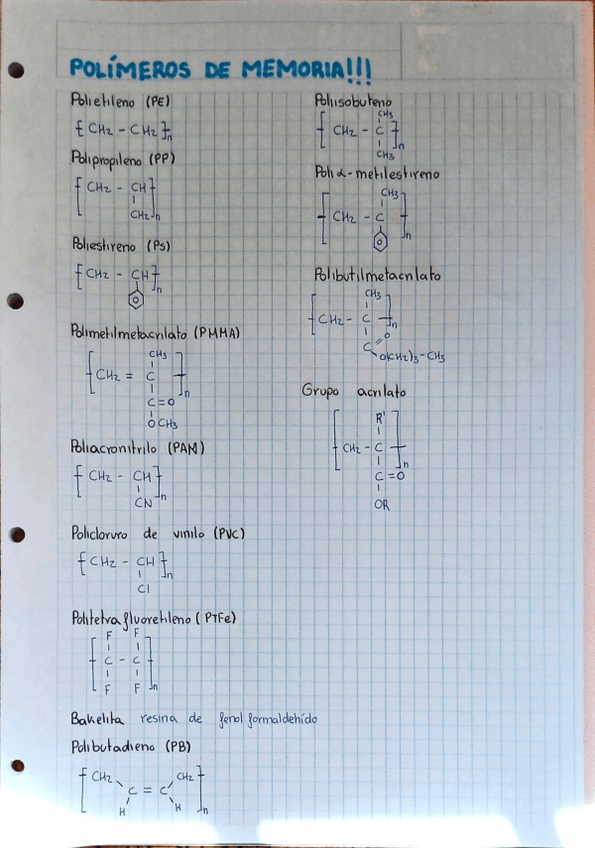 POLÍMEROS DE MEMORIA!!!
Polietileno (PE)
[CH2 - CH2]n
Polipropileno (PP)
[CH2 - CH]
CH2 n
Poliestireno (Ps)
[CH2 - CH]n
Polimetilmetacrilato (PMMA)
CH3
[CH2 = C]n
C=O
OCH3
Poliacronitrilo (PAN)
[CH2 - CH]n
CN
Policloruro de vinilo (PVC)
[CH2 - CH]n
Cl
Politetrafluoretileno (PTFe)
F F
[C - C]n
F F
Bakelita resina de fenol formaldehído
Polibutadieno (PB)
[CH2 CH2]
C = C
H H n
Poliisobuteno
CH3
[CH2 - C]n
CH3
Poli α-metilestireno
CH3
[CH2 - C]n
Polibutilmetacrilato
CH3
[CH2 - C]n
C = O
O(CH2)3-CH3
Grupo acrilato
R'
[CH2 - C]n
C=O
OR